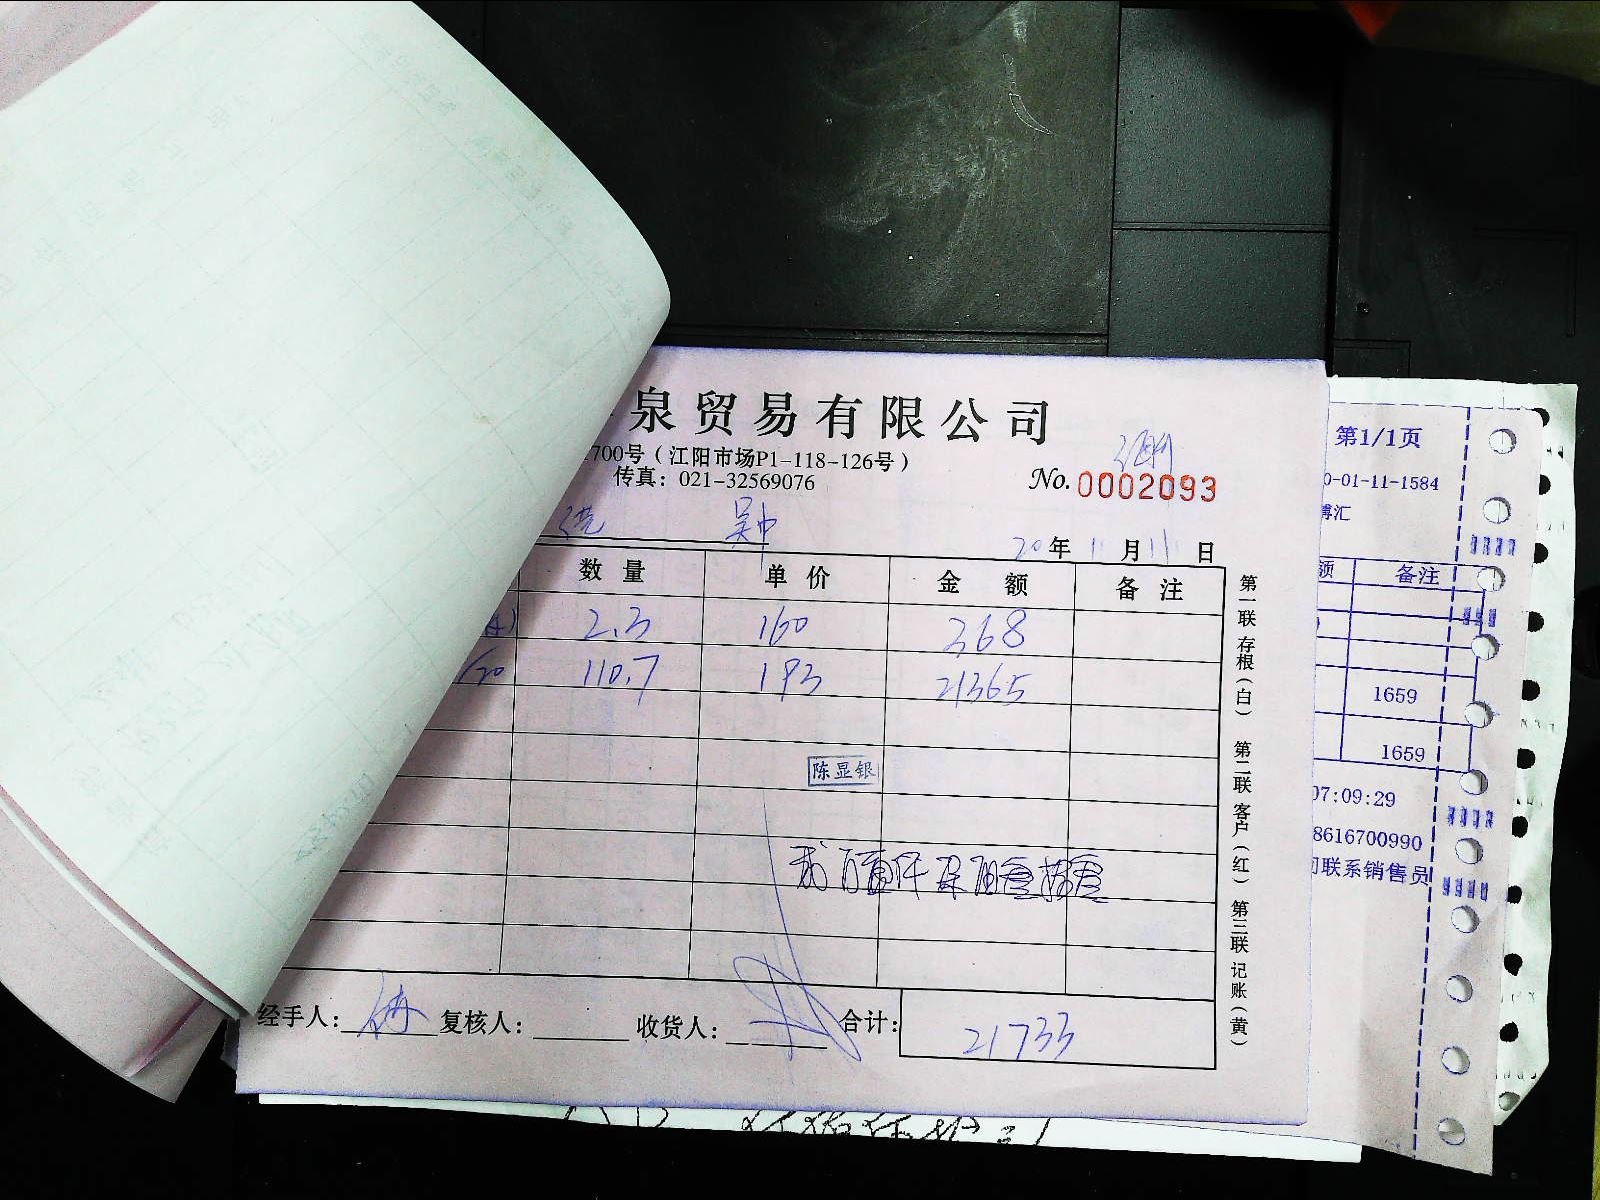 泉贸易有限公司
700号（江阳市场P1-118-126号）
传真：021-32569076
No. 0002093
吴中
20年11月11日
数量 单价 金额 备注
2.3 160 368
/20 110.7 193 21365
陈显银
经手人： 复核人： 收货人： 合计： 21733
第一联存根（白） 第二联客户（红） 第三联记账（黄）
第1/1页
0-01-11-1584
博汇
额 备注
1659
1659
07:09:29
8616700990
联系销售员